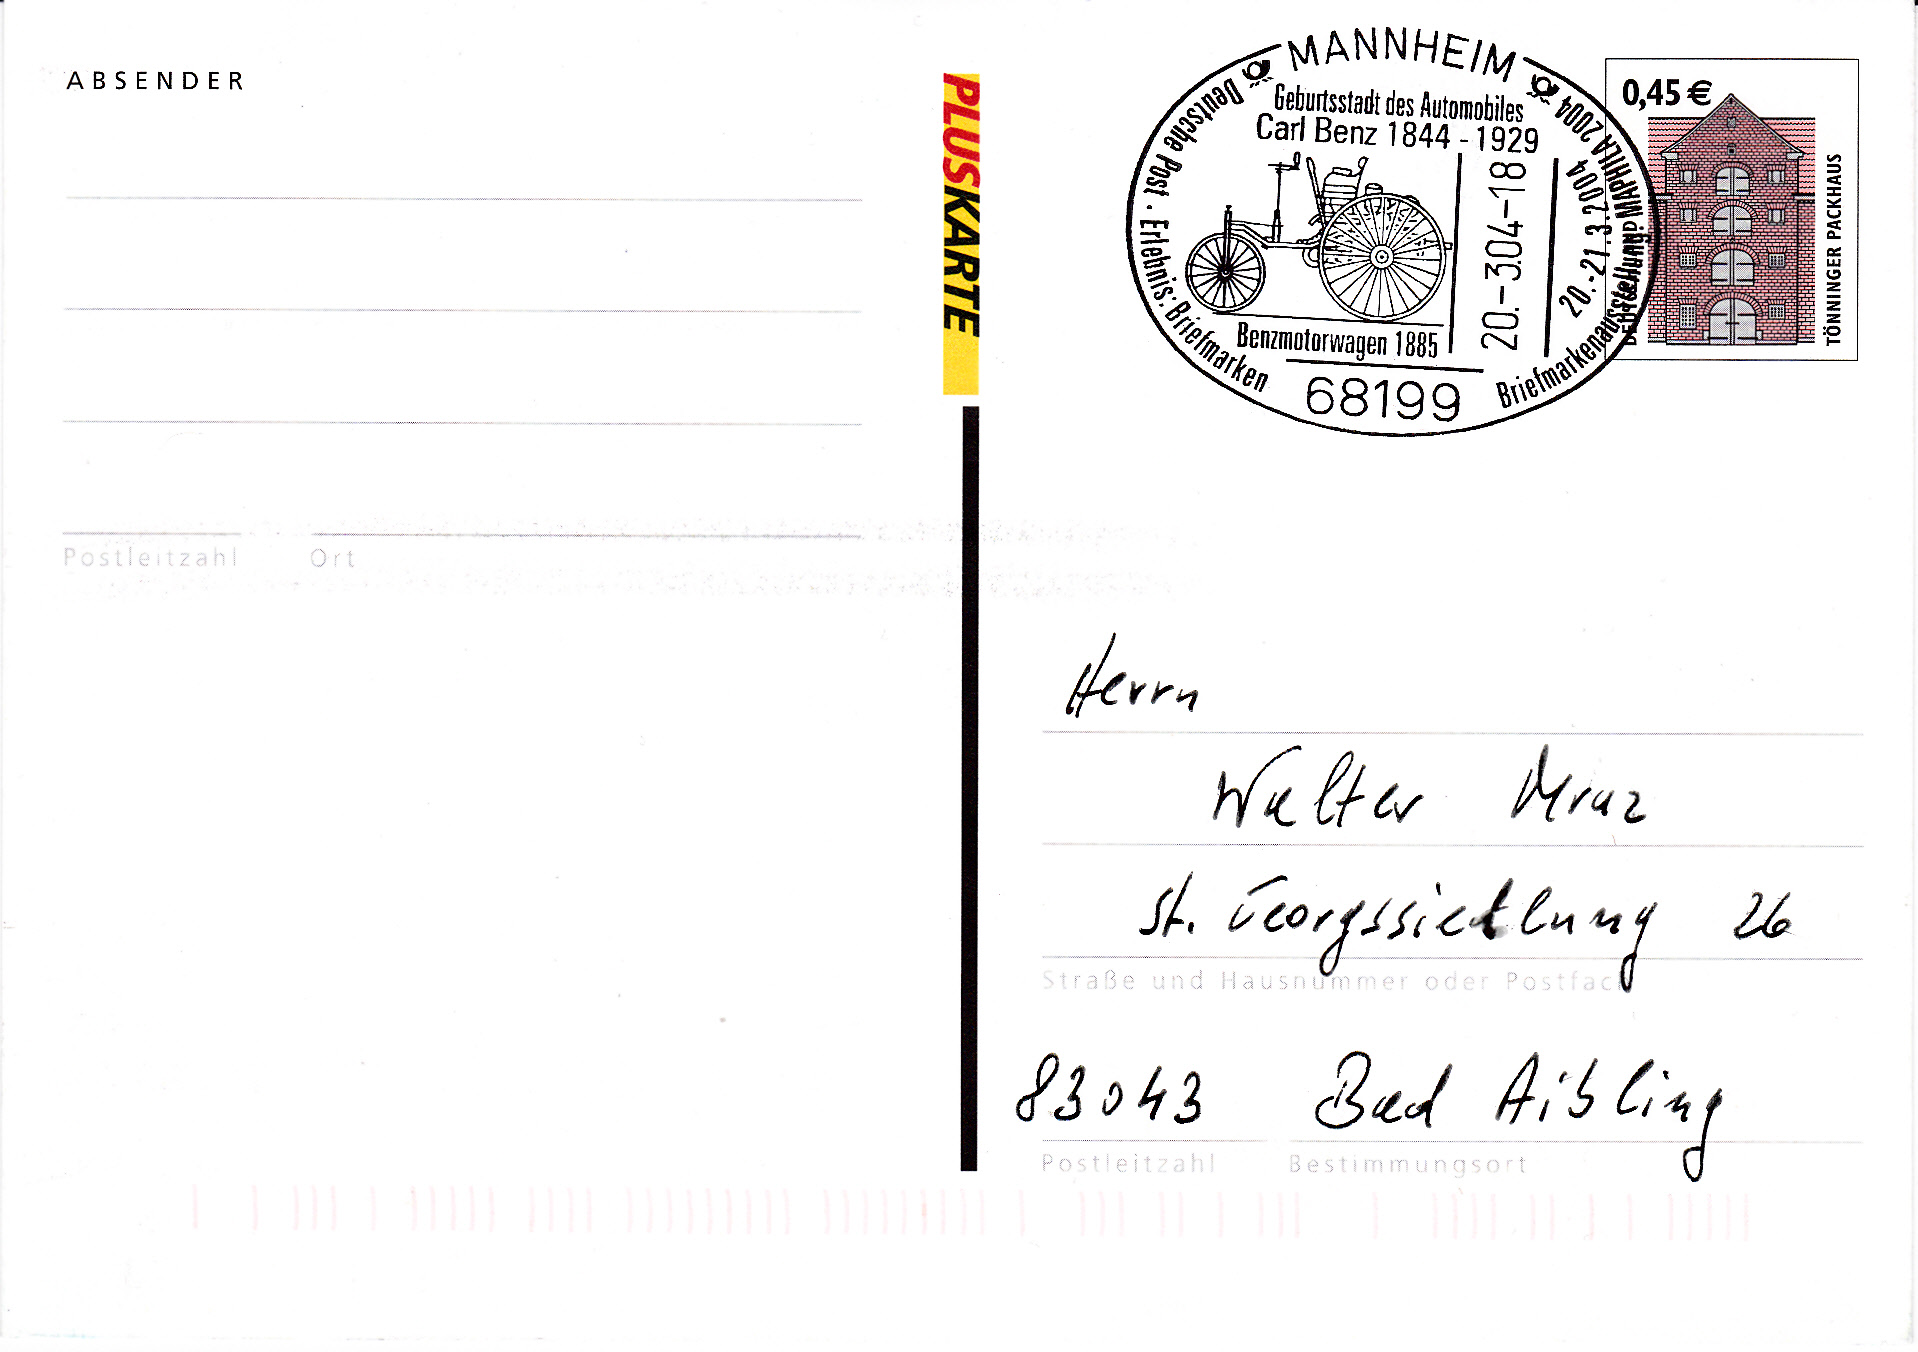 ABSENDER
Postleitzahl Ort
PLUSKARTE
MANNHEIM
Geburtsstadt des Automobiles
Carl Benz 1844 - 1929
Benzmotorwagen 1885
20.-3.04-18
20.-21.3.2004
68199
Deutsche Post . Erlebnis: Briefmarken
Briefmarkenausstellung MAPHILA 2004
0,45 €
DEUTSCHLAND
TÖNNINGER PACKHAUS
Herrn
Walter Mraz
St. Georgssiedlung 26
Straße und Hausnummer oder Postfach
83043 Bad Aibling
Postleitzahl Bestimmungsort